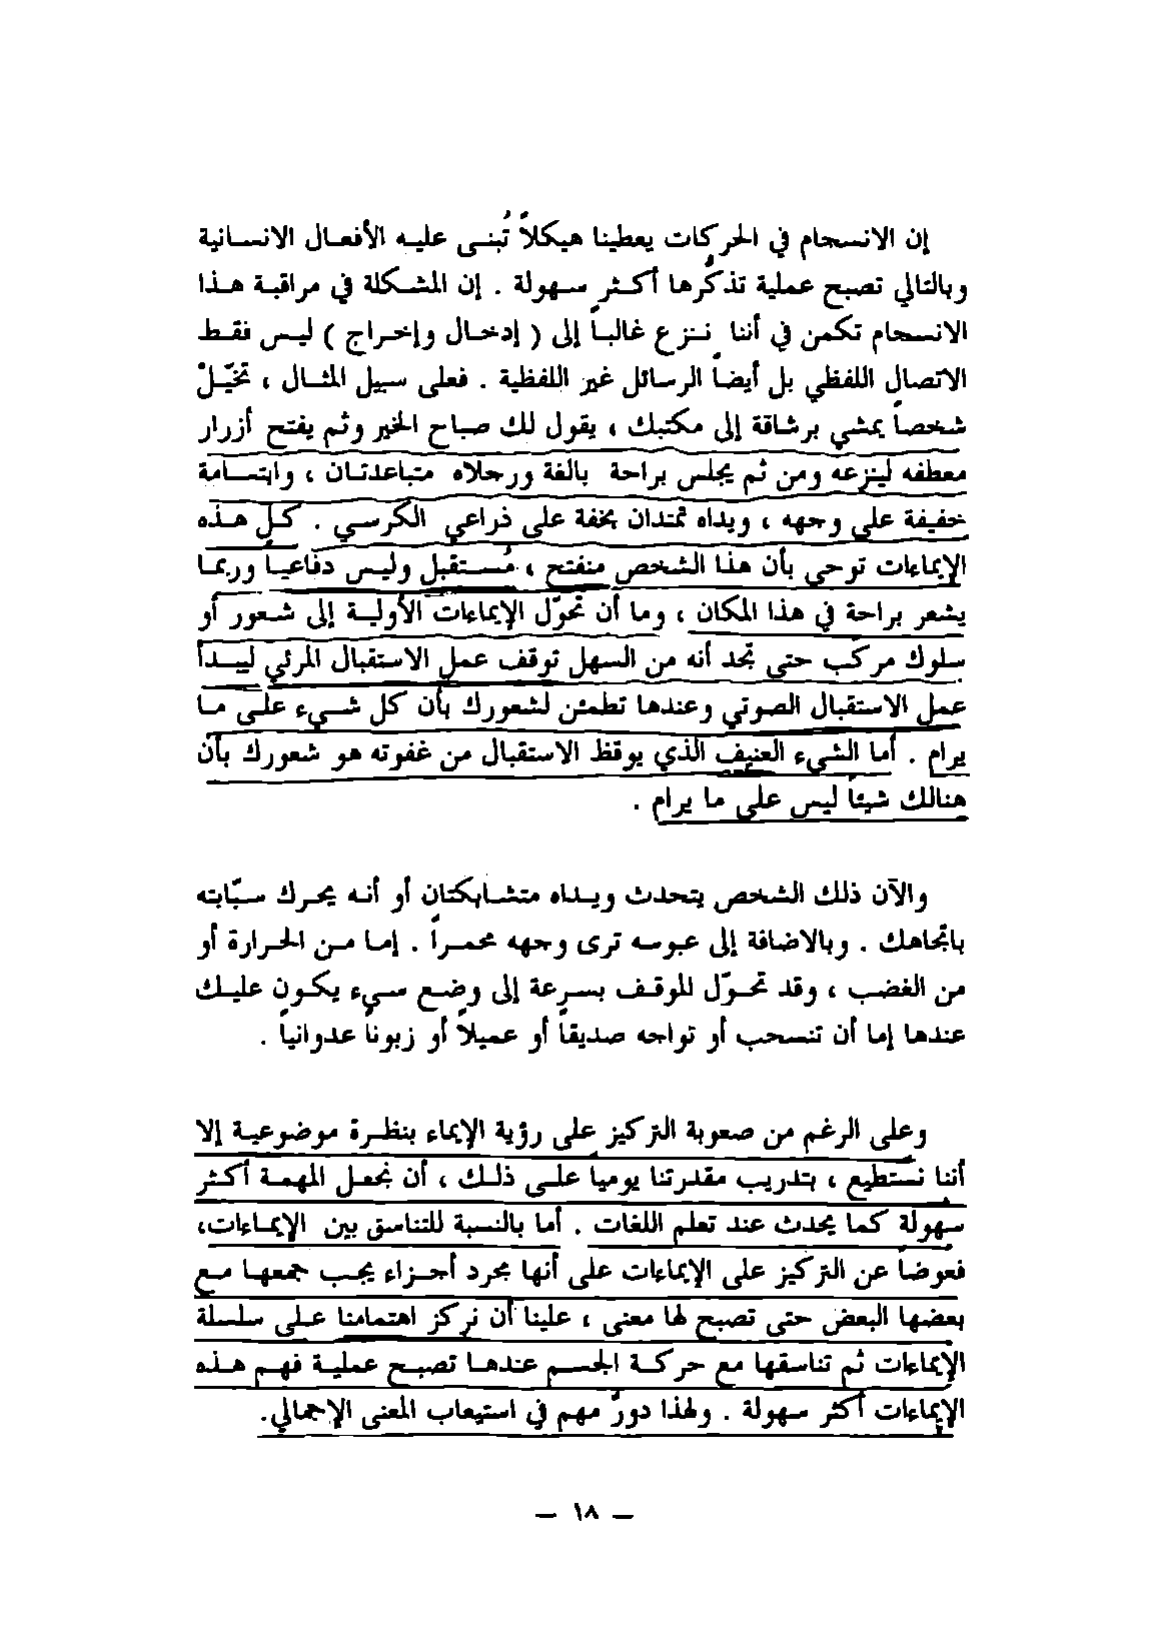 إن الانسجام في الحركات يعطينا هيكلاً تُبنى عليه الأفعال الانسانية
وبالتالي تصبح عملية تذكّرها أكثر سهولة . إن المشكلة في مراقبة هذا
الانسجام تكمن في أننا ننزع غالباً إلى ( إدخال وإخراج ) ليس فقط
الاتصال اللفظي بل أيضاً الرسائل غير اللفظية . فعلى سبيل المثال ، تخيّلْ
شخصاً يمشي برشاقة إلى مكتبك ، يقول لك صباح الخير وثم يفتح أزرار
معطفه لينزعه ومن ثم يجلس براحة بالغة ورجلاه متباعدتان ، وابتسامة
خفيفة على وجهه ، ويداه تمتدان بخفة على ذراعي الكرسي . كل هذه
الإيماءات توحي بأن هذا الشخص منفتح ، مُستقبل وليس دفاعياً وربما
يشعر براحة في هذا المكان ، وما أن تحوّل الإيماءات الأولية إلى شعور أو
سلوك مركّب حتى تجد أنه من السهل توقف عمل الاستقبال المرئي ليبدأ
عمل الاستقبال الصوتي وعندها تطمئن لشعورك بأن كل شيء على ما
يرام . أما الشيء العنيف الذي يوقظ الاستقبال من غفوته هو شعورك بأن
هنالك شيئاً ليس على ما يرام .
والآن ذلك الشخص يتحدث ويداه متشابكتان أو أنه يحرك سبّابته
باتجاهك . وبالاضافة إلى عبوسه ترى وجهه محمراً . إما من الحرارة أو
من الغضب ، وقد تحوّل الموقف بسرعة إلى وضع سيء يكون عليك
عندها إما أن تنسحب أو تواجه صديقاً أو عميلاً أو زبوناً عدوانياً .
وعلى الرغم من صعوبة التركيز على رؤية الإيماء بنظرة موضوعية إلا
أننا نستطيع ، بتدريب مقدرتنا يومياً على ذلك ، أن نجعل المهمة أكثر
سهولة كما يحدث عند تعلم اللغات . أما بالنسبة للتناسق بين الإيماءات،
فعوضاً عن التركيز على الإيماءات على أنها مجرد أجزاء يجب جمعها مع
بعضها البعض حتى تصبح لها معنى ، علينا أن نركز اهتمامنا على سلسلة
الإيماءات ثم تناسقها مع حركة الجسم عندها تصبح عملية فهم هذه
الإيماءات أكثر سهولة . ولهذا دورٌ مهم في استيعاب المعنى الإجمالي.
— ١٨ —